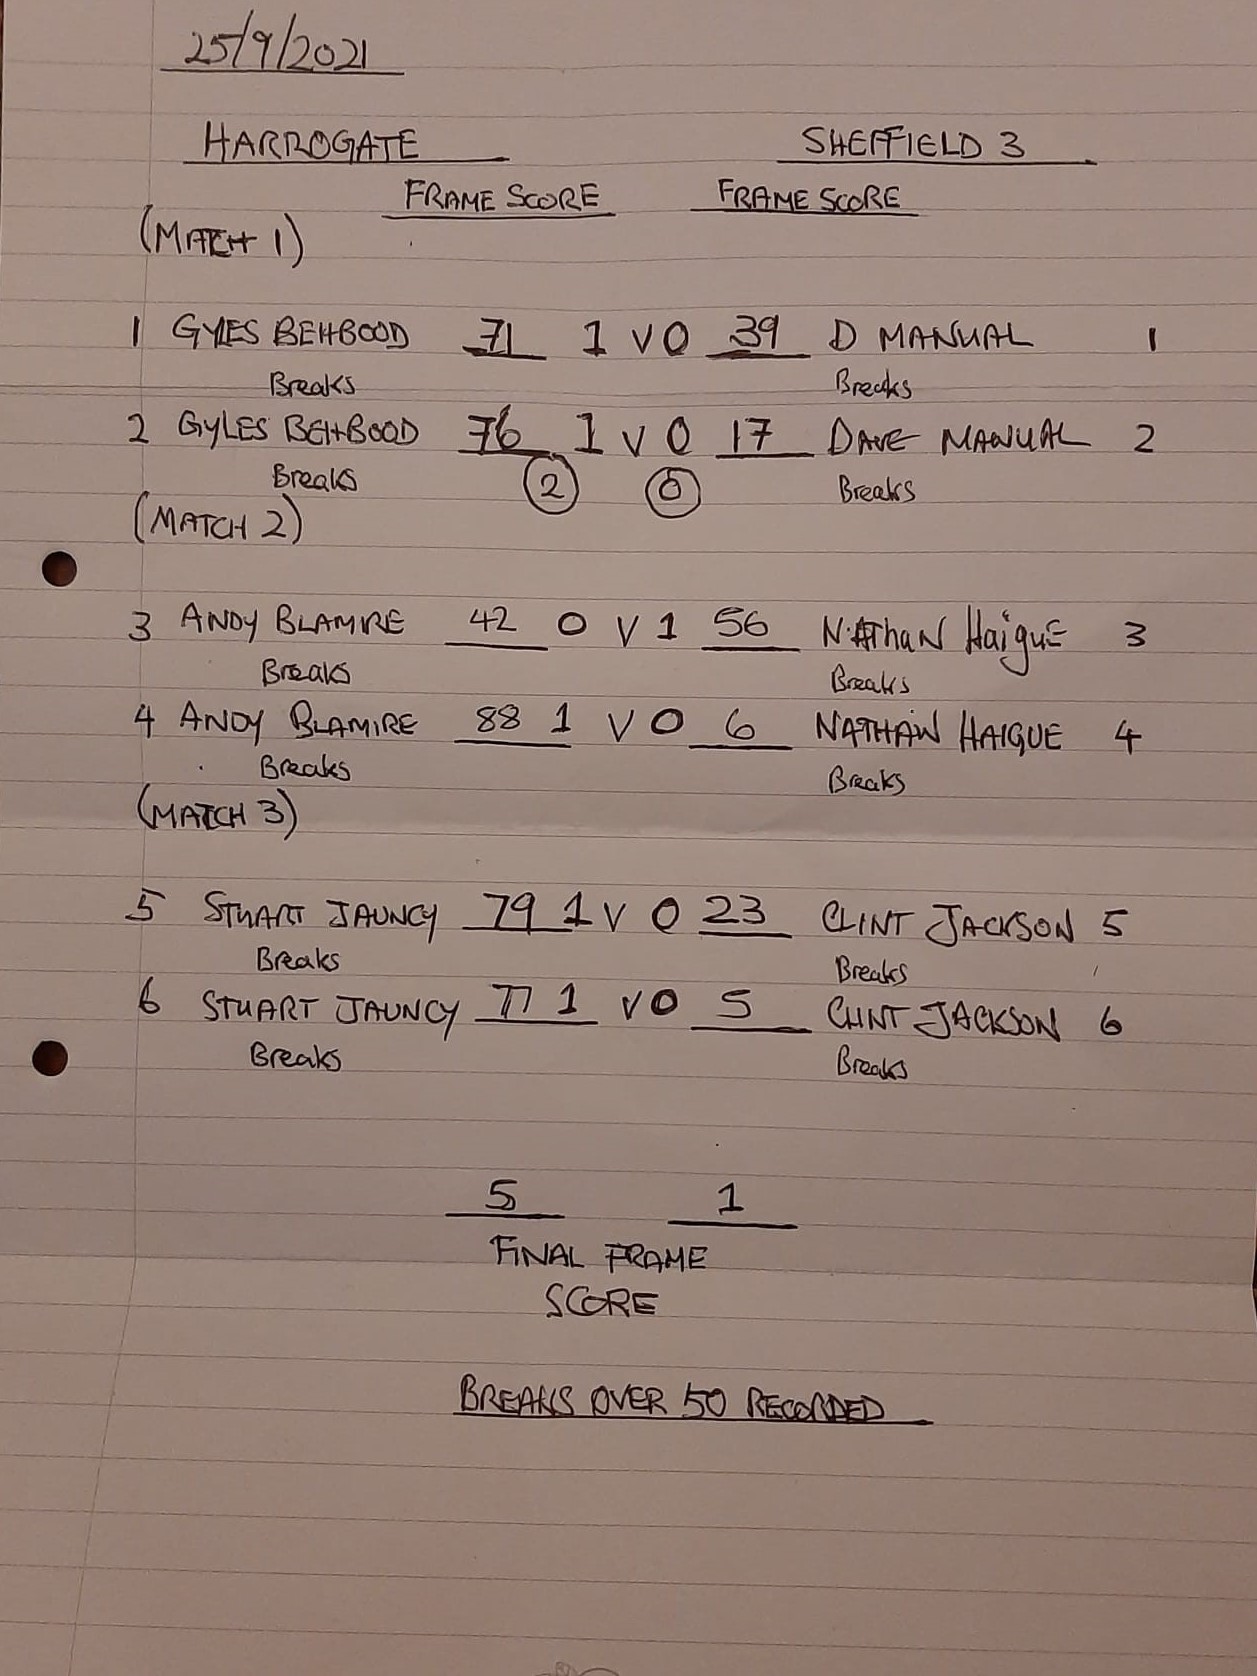 25/9/2021
HARROGATE SHEFFIELD 3
FRAME SCORE FRAME SCORE
(MATCH 1)
1 GYLES BEHBOOD 71 1 V 0 39 D MANUAL 1
Breaks Breaks
2 GYLES BEHBOOD 76 1 V 0 17 DAVE MANUAL 2
Breaks 2 0 Breaks
(MATCH 2)
3 ANDY BLAMIRE 42 0 V 1 56 NATHAN HaiguE 3
Breaks Breaks
4 ANDY BLAMIRE 88 1 V 0 6 NATHAN HAIGUE 4
Breaks Breaks
(MATCH 3)
5 STUART JAUNCY 79 1 V 0 23 CLINT JACKSON 5
Breaks Breaks
6 STUART JAUNCY 77 1 V 0 5 CLINT JACKSON 6
Breaks Breaks
5 1
FINAL FRAME
SCORE
BREAKS OVER 50 RECORDED